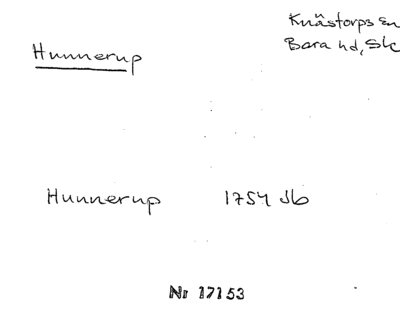 Knästorps sn
Bara hd, Sk
Hunnerup
Hunnerup 1754 Jb
Nr 17153